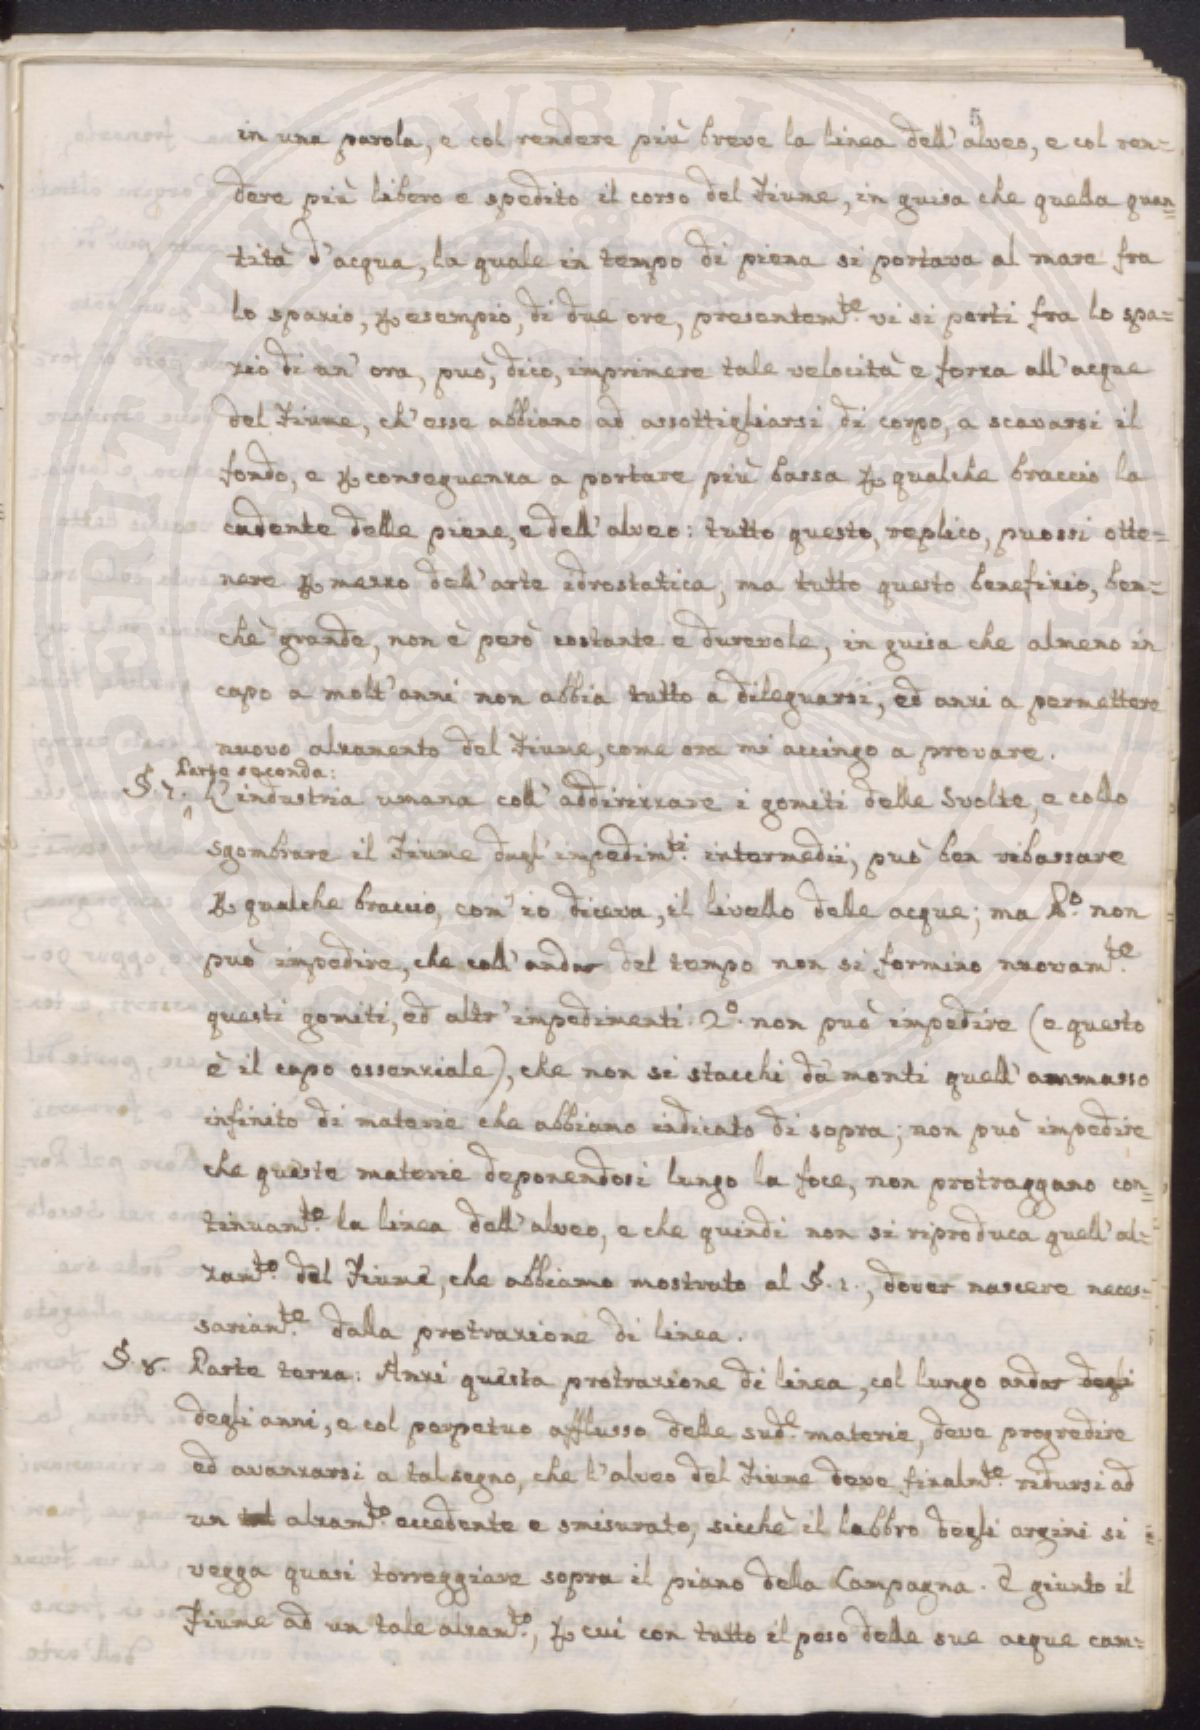 5
in una parola, e col rendere più breve la linea dell'alveo, e col ren=
dere più libero e spedito il corso del Fiume, in guisa che quella quan=
tità d'acqua, la quale in tempo di piena si portava al mare fra
lo spazio, ꝑ esempio, di due ore, presentem.te vi si porti fra lo spa=
zio di un' ora, può, dico, imprimere tale velocità e forza all'acque
del Fiume, ch'esse abbiano ad assottigliarsi di corpo, a scavarsi il
fondo, e ꝑ conseguenza a portare più bassa ꝑ qualche braccio la
cadente delle piene, e dell'alveo: tutto questo, replico, puossi otte=
nere ꝑ mezzo dell'arte idrostatica, ma tutto questo benefizio, ben=
chè grande, non è però costante e durevole, in guisa che almeno in
capo a molt'anni non abbia tutto a dileguarsi, ed anzi a permettere
nuovo alzamento del Fiume, come ora mi accingo a provare.
Parte seconda:
§. 7. L'industria umana coll'addirizzare i gomiti delle Svolte, e collo
sgombrare il Fiume dagl'impedim.ti intermedii, può ben ribassare
ꝑ qualche braccio, com'io diceva, il livello delle acque; ma P.o non
può impedire, che coll'andar del tempo non si formino nuovam.te
questi gomiti, ed altr'impedimenti. 2.o non può impedire (e questo
è il capo essenziale), che non si stacchi da' monti quell'ammasso
infinito di materie che abbiamo indicato di sopra; non può impedire
che queste materie deponendosi lungo la foce, non protraggano con=
tinuam.te la linea dell'alveo, e che quindi non si riproduca quell'al=
zam.to del Fiume, che abbiamo mostrato al §. 1., dover nascere neces=
sariam.te dalla protrazione di linea.
§. 8. Parte terza: Anzi questa protrazione di linea, col lungo andar degli
degli anni, e col perpetuo afflusso delle sud.e materie, deve progredire
ed avanzarsi a tal segno, che l'alveo del Fiume deve finalm.te ridursi ad
un alzam.to eccedente e smisurato, sicchè il labbro degli argini si
vegga quasi torreggiare sopra il piano della Campagna. E giunto il
Fiume ad un tale alzam.to, ꝑ cui con tutto il peso delle sue acque cam=